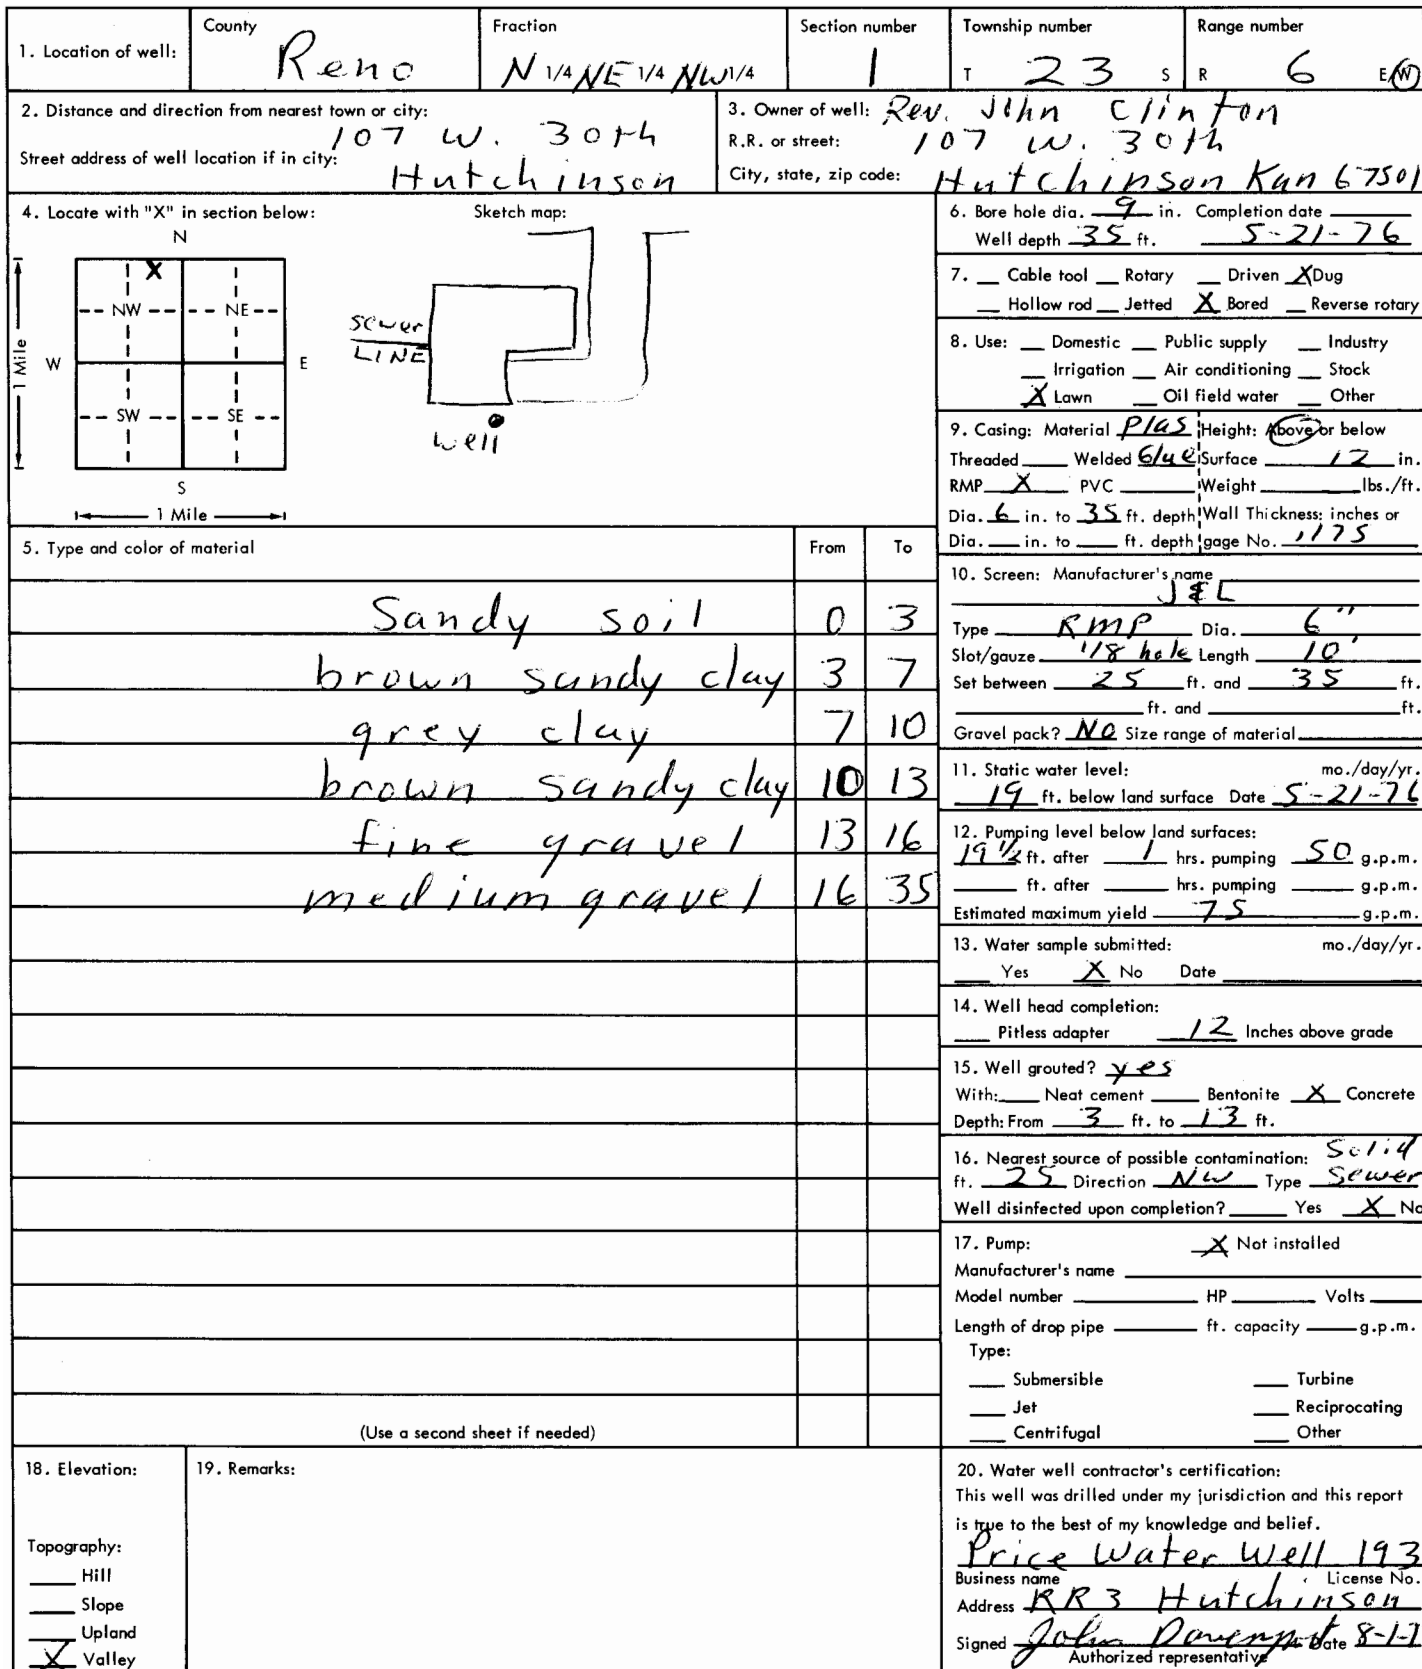 1. Location of well:
County
Reno
Fraction
N 1/4 NE 1/4 NW 1/4
Section number
1
Township number
T 23 S
Range number
R 6 E/W
2. Distance and direction from nearest town or city:
107 W. 30th
Street address of well location if in city:
Hutchinson
3. Owner of well: Rev. John Clinton
R.R. or street: 107 W. 30th
City, state, zip code: Hutchinson Kan 67501
4. Locate with "X" in section below:
Sketch map:
N
X
NW NE
W E
SW SE
S
1 Mile
1 Mile
sewer
LINE
well
5. Type and color of material From To
Sandy soil 0 3
brown sandy clay 3 7
grey clay 7 10
brown sandy clay 10 13
fine gravel 13 16
medium gravel 16 35
(Use a second sheet if needed)
6. Bore hole dia. 9 in. Completion date
Well depth 35 ft. 5-21-76
7. Cable tool Rotary Driven X Dug
Hollow rod Jetted X Bored Reverse rotary
8. Use: Domestic Public supply Industry
Irrigation Air conditioning Stock
X Lawn Oil field water Other
9. Casing: Material Plas Height: Above or below
Threaded Welded Glue Surface 12 in.
RMP X PVC Weight lbs./ft.
Dia. 6 in. to 35 ft. depth Wall Thickness: inches or
Dia. in. to ft. depth gage No. .175
10. Screen: Manufacturer's name
J & L
Type RMP Dia. 6"
Slot/gauze 1/8 hole Length 10'
Set between 25 ft. and 35 ft.
ft. and ft.
Gravel pack? NO Size range of material
11. Static water level: mo./day/yr.
19 ft. below land surface Date 5-21-76
12. Pumping level below land surfaces:
19 1/2 ft. after 1 hrs. pumping 50 g.p.m.
ft. after hrs. pumping g.p.m.
Estimated maximum yield 75 g.p.m.
13. Water sample submitted: mo./day/yr.
Yes X No Date
14. Well head completion:
Pitless adapter 12 Inches above grade
15. Well grouted? yes
With: Neat cement Bentonite X Concrete
Depth: From 3 ft. to 13 ft.
16. Nearest source of possible contamination: Solid
ft. 25 Direction NW Type Sewer
Well disinfected upon completion? Yes X No
17. Pump: X Not installed
Manufacturer's name
Model number HP Volts
Length of drop pipe ft. capacity g.p.m.
Type:
Submersible Turbine
Jet Reciprocating
Centrifugal Other
18. Elevation:
Topography:
Hill
Slope
Upland
X Valley
19. Remarks:
20. Water well contractor's certification:
This well was drilled under my jurisdiction and this report
is true to the best of my knowledge and belief.
Price Water Well 193
Business name License No.
Address RR 3 Hutchinson
Signed John Davenport Date 8-1-7
Authorized representative